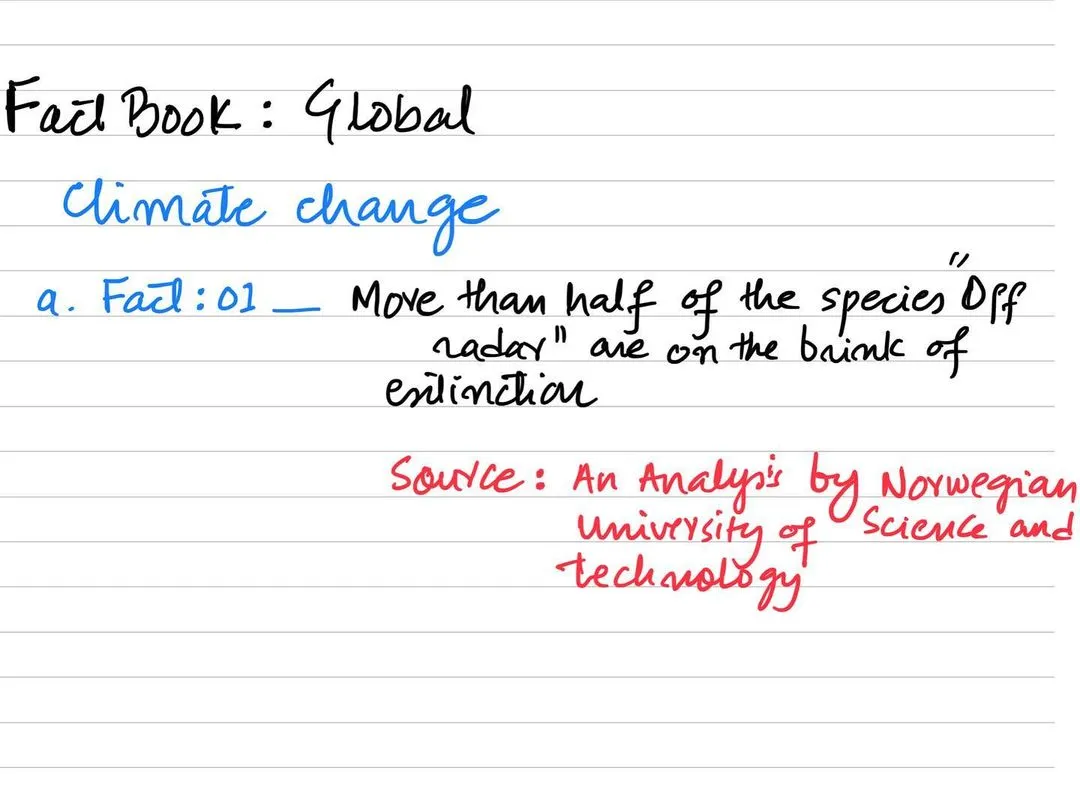 Fact Book : Global
Climate change
a. Fact : 01 — More than half of the species "Off
radar" are on the brink of
extinction
Source : An Analysis by Norwegian
University of Science and
technology